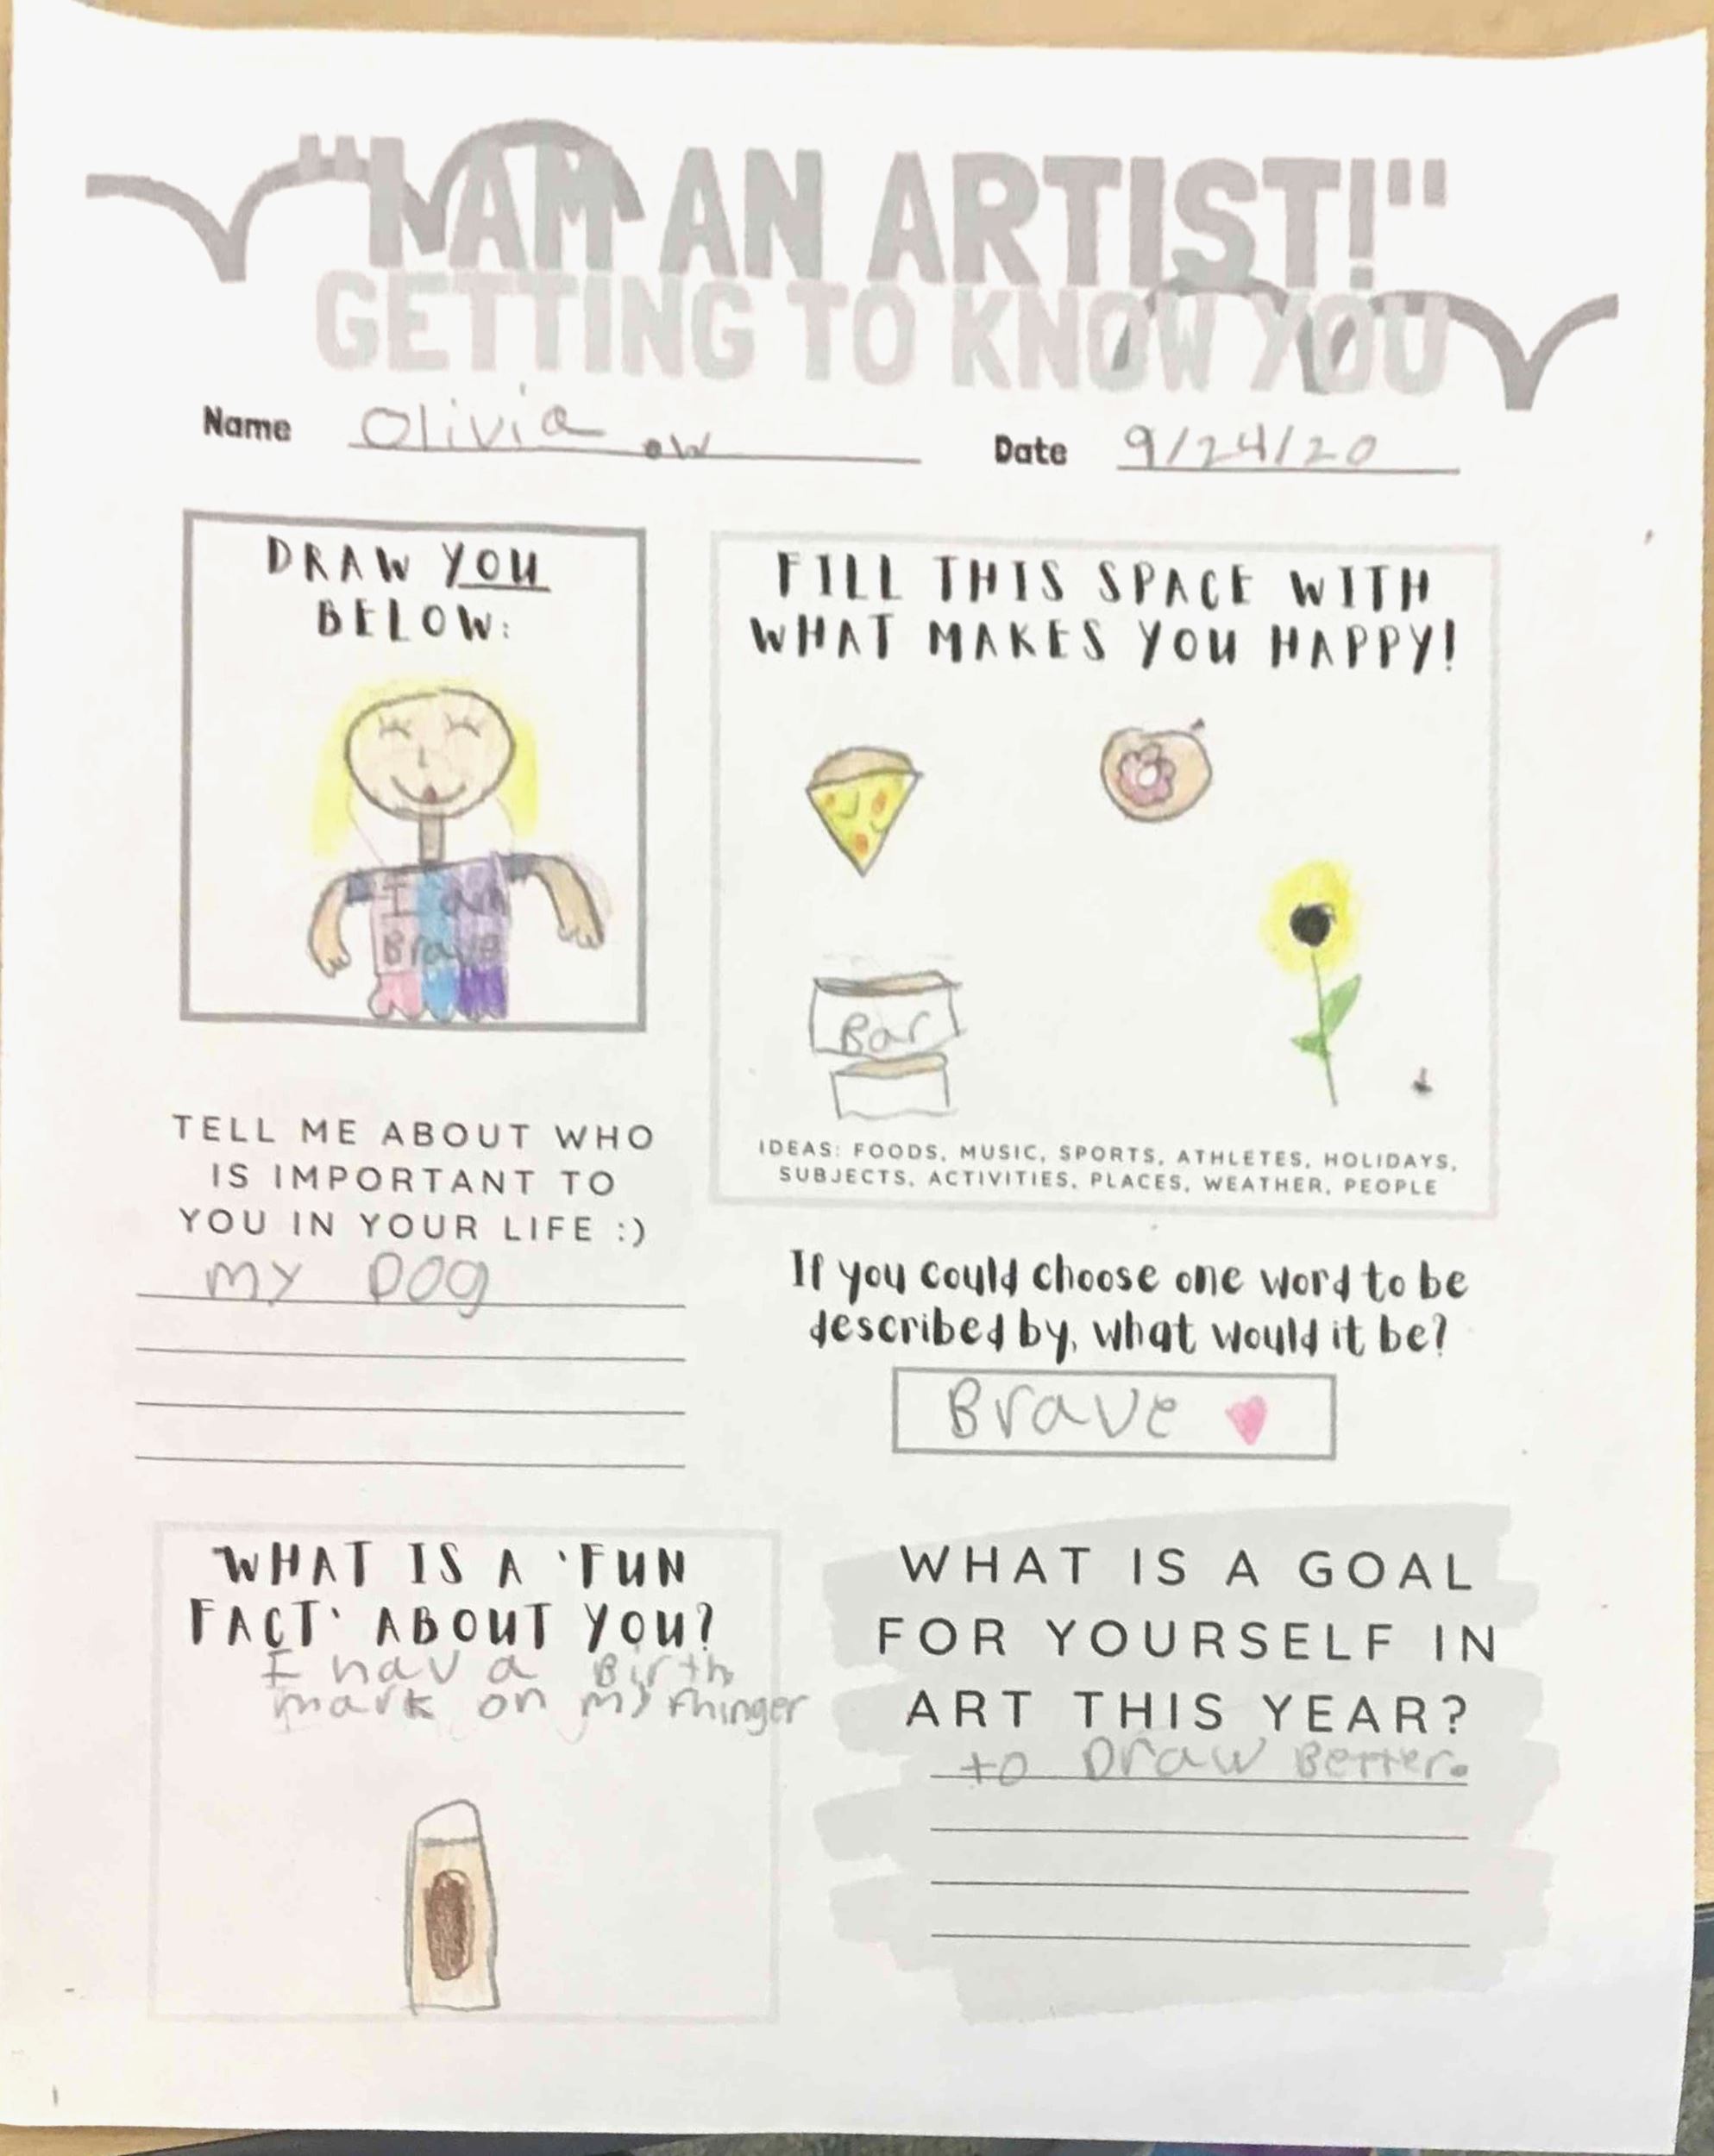 "I AM AN ARTIST!"
GETTING TO KNOW YOU
Name Olivia ow
Date 9/24/20
DRAW YOU
BELOW:
I am
Brave
FILL THIS SPACE WITH
WHAT MAKES YOU HAPPY!
Bar
IDEAS: FOODS, MUSIC, SPORTS, ATHLETES, HOLIDAYS,
SUBJECTS, ACTIVITIES, PLACES, WEATHER, PEOPLE
TELL ME ABOUT WHO
IS IMPORTANT TO
YOU IN YOUR LIFE :)
my Dog
If you could choose one word to be
described by, what would it be?
Brave
WHAT IS A 'FUN
FACT' ABOUT YOU?
I hav a Birth
mark on my fhinger
WHAT IS A GOAL
FOR YOURSELF IN
ART THIS YEAR?
to Draw Better.